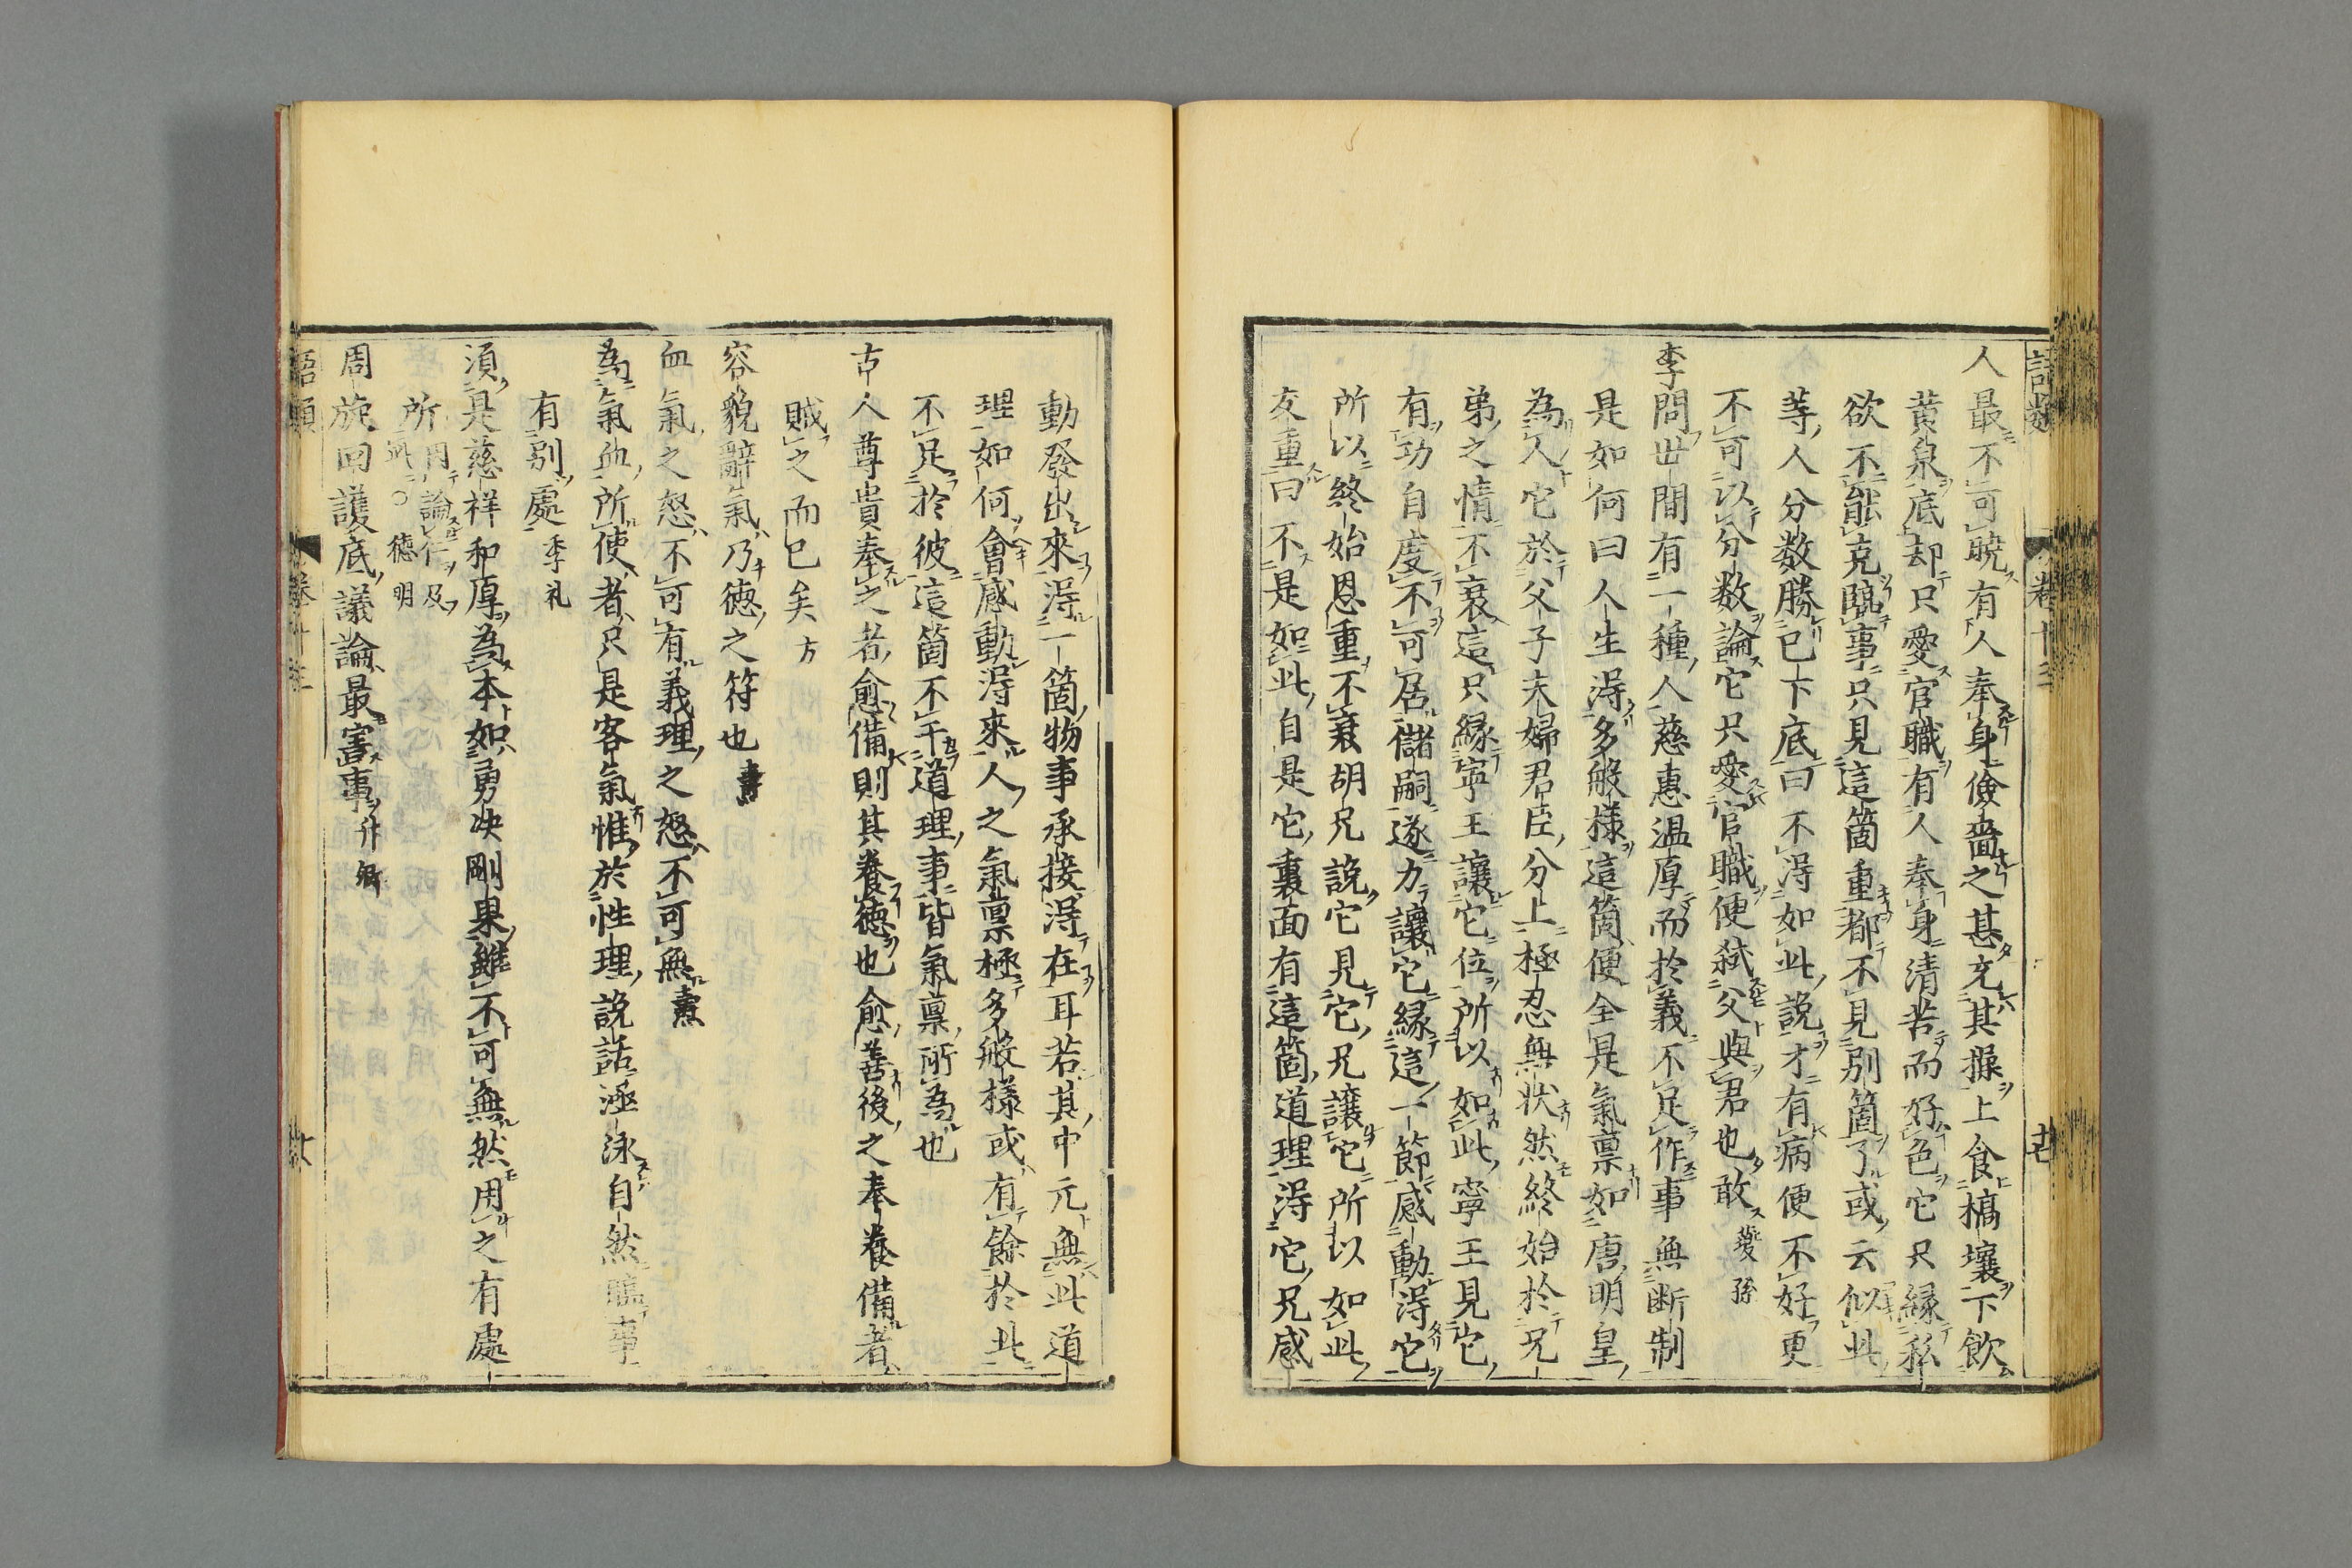 人最不可曉有人奉身儉嗇之甚充其操上食槁壤下飲
黃泉底却只愛官職有人奉身清苦而好色它只緣私
欲不能克臨事只見這箇重都不見別箇了或云似此
等人分数勝已下底曰不得如此說才有病便不好更
不可以分数論它只愛官職便弑父與君也敢 夔孫
李問世間有一種人慈惠温厚而於義不足作事無断制
是如何曰人生得多般樣這箇便全是氣禀如唐明皇
為人它於父子夫婦君臣分上極忍無状然終始於兄
弟之情不衰這只緣寧王讓它位所以如此寧王見它
有功自度不可居儲嗣遂力讓它緣這一節感動得它
所以終始恩重不衰胡兄說它見它兄讓它所以如此
友重曰不是如此自是它裏面有這箇道理得它兄感
動發出來得一箇物事承接得在耳若其中元無此道
理如何會感動得來人之氣禀極多般樣或有餘於此
不足於彼這箇不干道理事皆氣禀所為也
古人尊貴奉之者愈備則其養德也愈善後之奉養備者
賊之而已矣 方
容貌辭氣乃德之符也 燾
血氣之怒不可有義理之怒不可無 燾
為氣血所使者只是客氣惟於性理說話涵泳自然臨事
有別處 季礼
須是慈祥和厚為本如勇决剛果雖不可無然用之有處
所 因論仁及此 ○ 德明
周旋回護底議論最害事 升卿
語類 卷十三